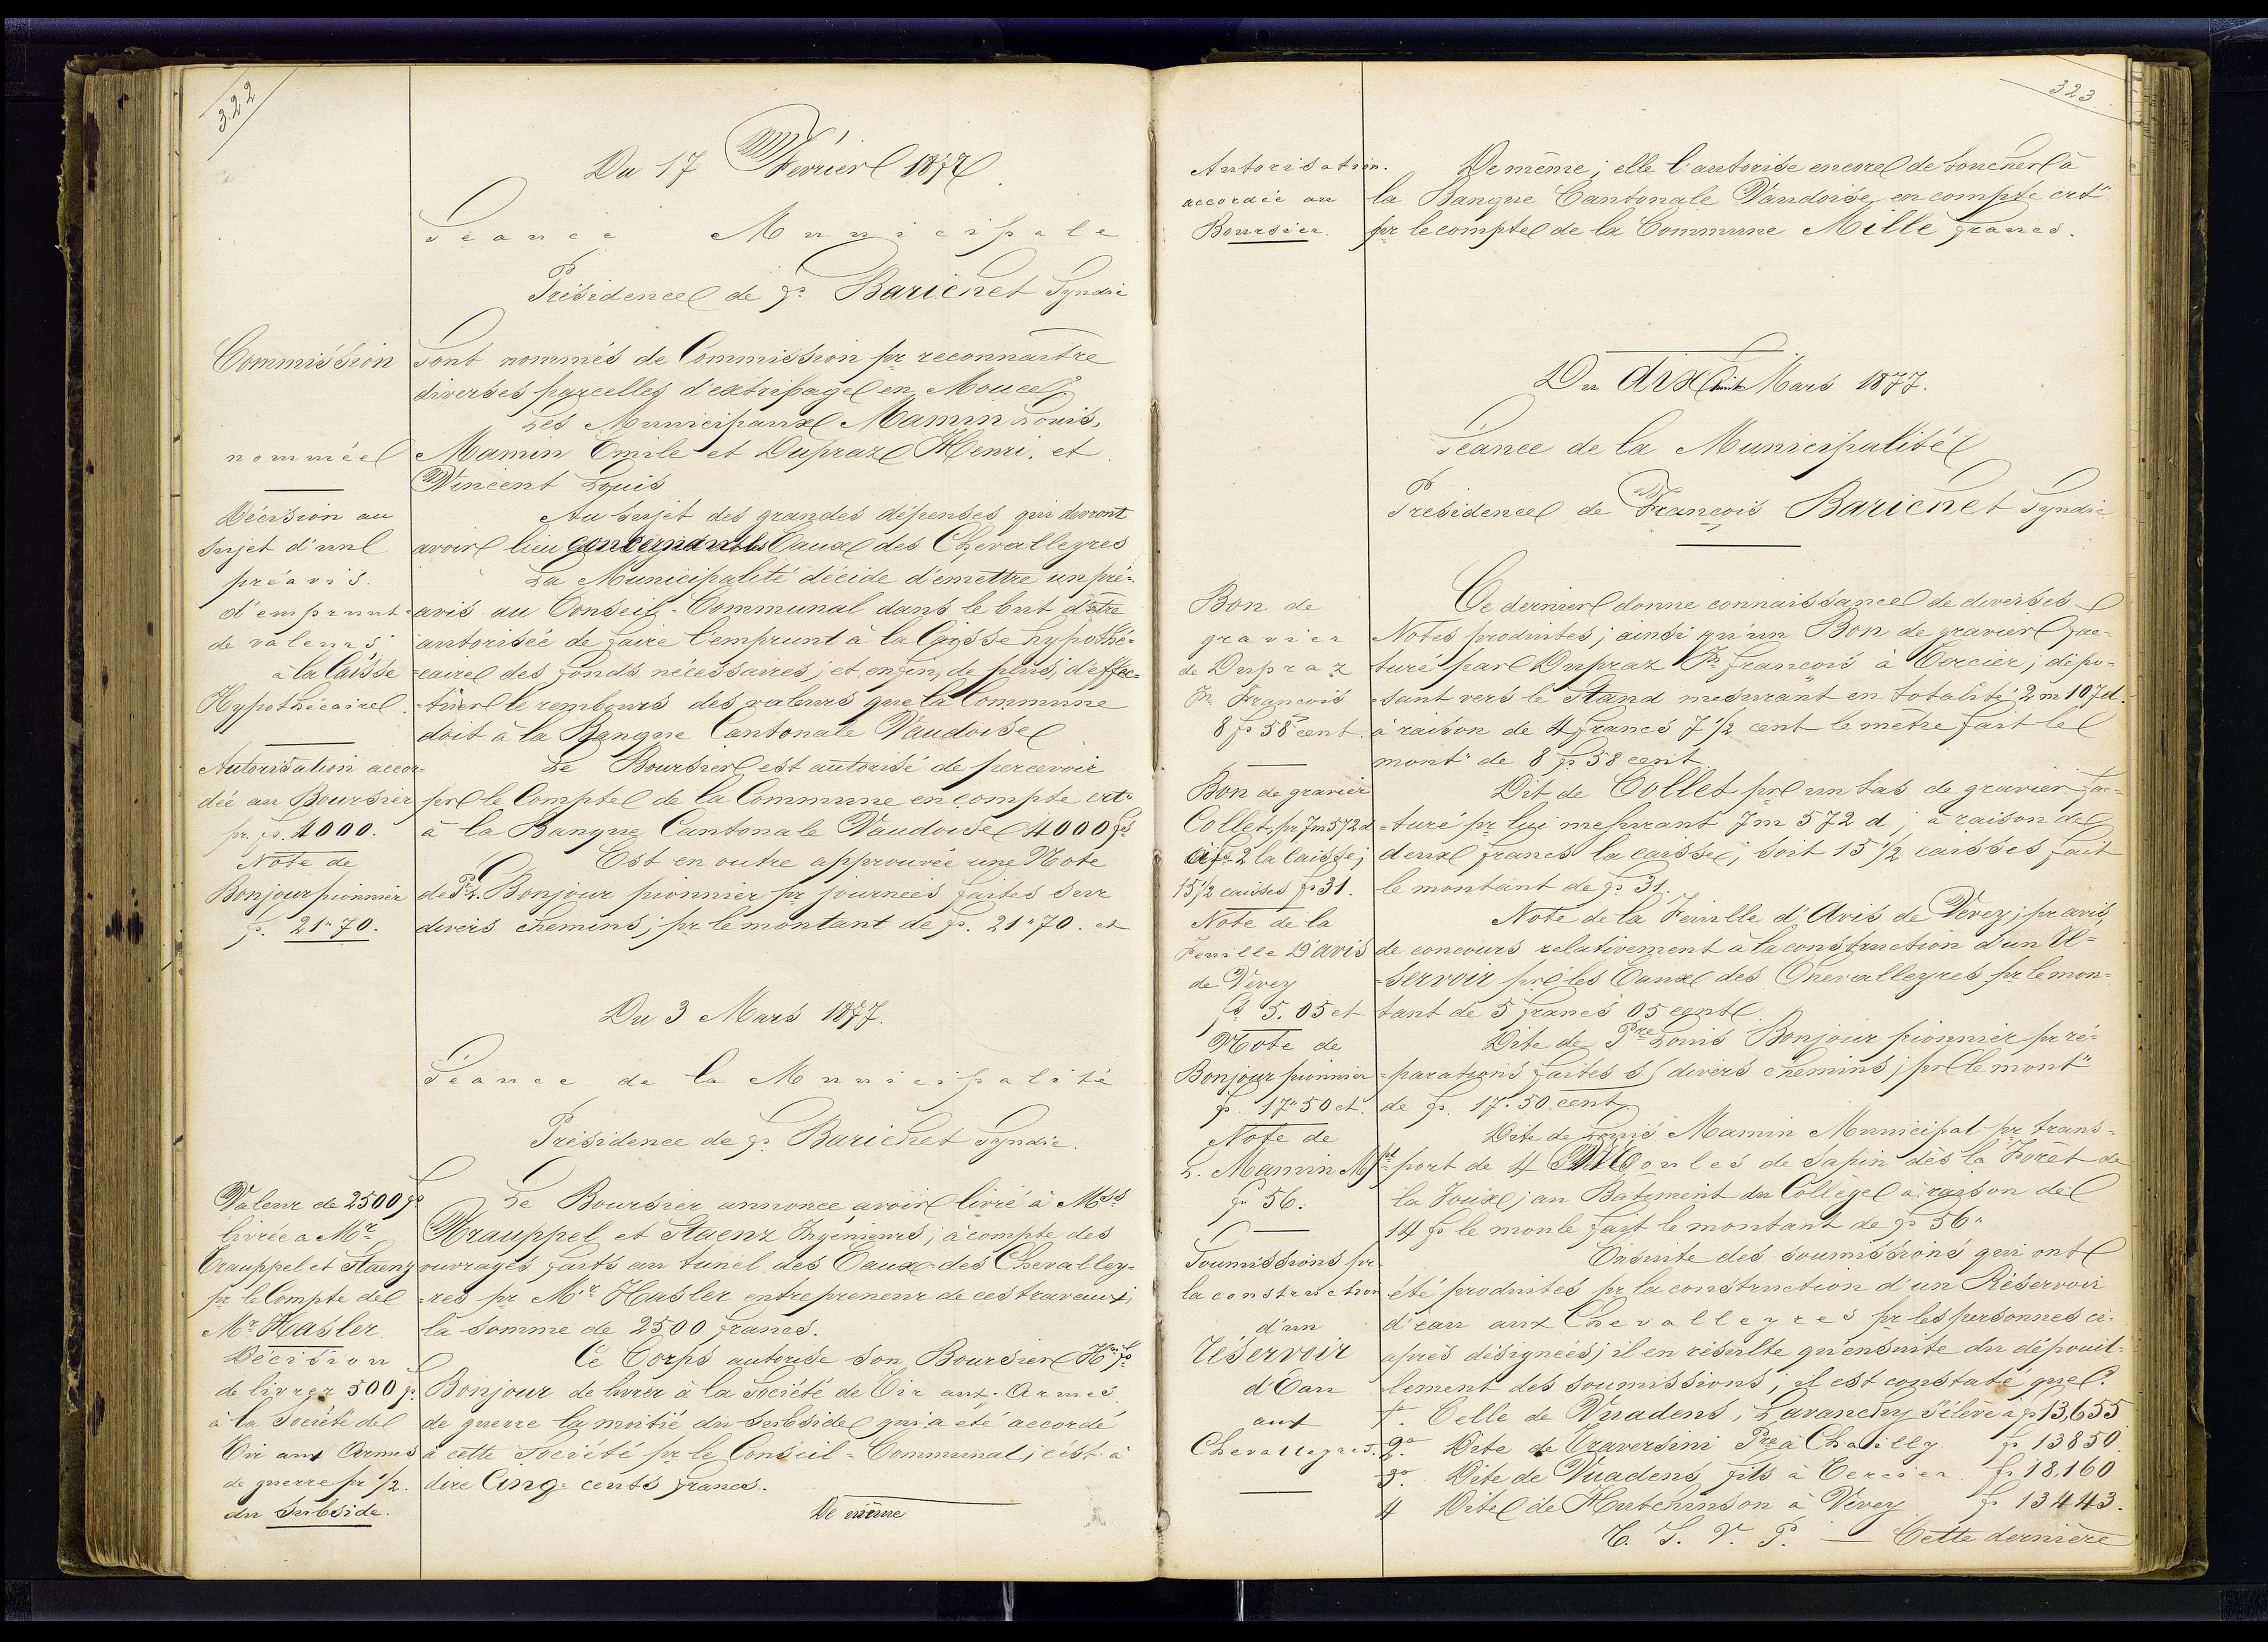 322
Du 17 Février 1877
Séance Municipale
Présidence de fs. Barichet Syndic
Commission
nommée
Sont nommés de Commission pr reconnaitre
diverses parcelles d'extripage en Mouce
Les Municipaux Mamin Louis,
Mamin Emile et Dupraz Henri. et
Vincent Louis
Décision au
sujet d'un
préavis.
d'emprunt
de valeurs
à la Caisse
Hypothécaire.
Au sujet des grandes dépenses qui devront
avoir lieu concernant les Eaux des Chevalleyres
La Municipalité décide d'emettre un pré-
avis au Conseil-Communal dans le but d'être
autorisée de faire l'emprunt à la Caisse hypothé-
-caire des fonds nécessaires; et enfin, de plus, d'effec-
-tuer le rembours des valeurs que la Commune
doit à la Banque Cantonale Vaudoise
Autorisation accor-
dée au Boursier
pr. fs. 4000.
Le Boursier est autorisé de percevoir
pr le Compte de la Commune en compte crt.
à la Banque Cantonale Vaudoise 4000 fs
Note de
Bonjour pionnier
fs. 21"70.
Est en outre approuvée une Note
de Pre L. Bonjour pionnier pr journées faites sur
divers chemins; pr le montant de fs. 21"70. ct
Du 3 Mars 1877.
Séance de la Municipalité
Présidence de fs Barichet Syndic.
Valeur de 2500 fs
livrée a Mr
Trauppel et Staenz
pr le Compte de
Mr Hasler.
Le Boursier annonce avoir livré à Mss
Trauppel et Staenz Ingénieurs; à compte des
ouvrages faits au tunel des Eaux des Chevalley-
-res pr Mr Hasler entrepreneur de ces traveaux;
la somme de 2500 francs.
Décision
de livrer 500 fs.
à la Société de
Tir aux Armes
de guerre pr 1/2.
du Subside.
Ce Corps autorise son Boursier Hri fs
Bonjour de livrer à la Société de Tir aux Armes
de guerre la moitié du Subside qui a été accordé
à cette Société pr le Conseil-Communal; c'est à
dire Cinq-cents francs.
De même
323.
Autorisation.
accordée au
Boursier.
De même; elle l'autorise encore de toucher à
la Banque Cantonale Vaudoise en compte crt"
pr le compte de la Commune Mille francs.
Du dix huit Mars 1877.
Séance de la Municipalité
Présidence de François Barichet Syndic
Bon de
gravier
de Dupraz
Jn François
8 fs 58 cent.
Ce dernier donne connaissance de diverses
Notes produites; ainsi qu'un Bon de gravier fac-
turé par Dupraz Jn François à Tercier; dépo-
-sant vers le Stand mesurant en totalité 2 m 107 d.
à raison de 4 francs 7 1/2 cent le mètre fait le
mont" de 8 fs 58 cent.
Bon de gravier
Collet, pr 7m 572 d
à fs 2 la caisse;
15 1/2 caisses fs 31.
Dit de Collet pr un tas de gravier fac-
-turé pr lui mesurant 7m 572 d; à raison de
deux francs la caisse; soit 15 1/2 caisses fait
le montant de fs 31.
Note de la
Feuille D'avis
de Vevey
fs 5.05 ct
Note de la Feuille d'Avis de Vevey; pr avis,
de concours relativement à la construction d'un Ré-
-servoir pr les Eaux des Chevalleyres pr le mon-
tant de 5 francs 05 cent.
Note de
Bonjour pionnier
fs. 17"50 ct.
Dite de Pre Louis Bonjour pionnier pr ré-
-parations faites s/ divers chemins; pr le mont"
de fs. 17.50 cent
Note de
L. Mamin Mpl
fs 56.
Dite de Louis Mamin Municipal pr trans-
-port de 4 Moules de Sapin dès la Forêt de
la Joux; au Batiment du Collège à raison de
14 fs le moule fait le montant de fs 56"
Soumissions pr
la construction
d'un
réservoir
d'Eau
aux
Chevalleyres.
Ensuite des soumissions qui ont
été produites pr la construction d'un Réservoir
d'eau aux Chevalleyres pr les personnes ci-
après désignées; il en résulte qu'ensuite du dépouil-
lement des soumissions; il est constaté que:
1o. Celle de Vuadens, Lavanchy s'élève a fs 13,655
2o. Dite de Traversini Pre à Chailly fs 13850.
3o. Dite de Vuadens, fils à Tercier fs 18,160
4 Dite de Hutchinson à Vevey fs 13443.
T. S. V. P. — Cette dernière